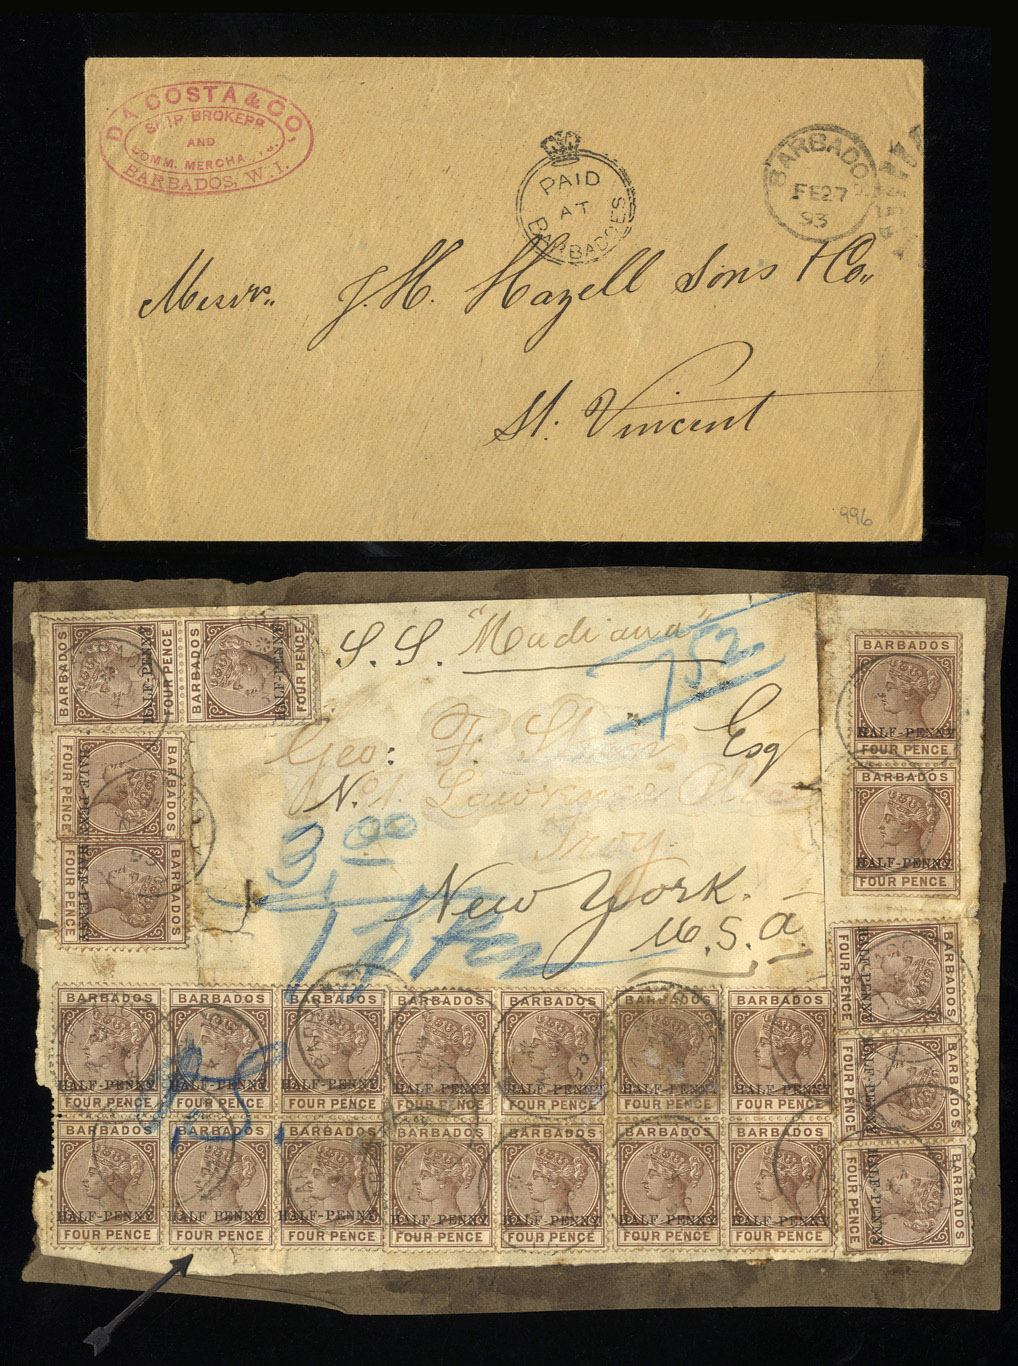 DA COSTA & CO,
SHIP BROKERS
AND
COMM. MERCHANTS.
BARBADOS, W. I.
PAID
AT
BARBADOES
BARBADOS
FE 27
93
Messrs. J. H. Hazell Sons & Co,,
St. Vincent
996
S. S. "Madiana"
752
Geo: F. Esq
N. 1. Lawrence
Troy.
New York.
U. S. A.
3 00
BARBADOS
HALF-PENNY
FOUR PENCE
BARBADOS
HALF-PENNY
FOUR PENCE
BARBADOS
HALF-PENNY
FOUR PENCE
BARBADOS
HALF-PENNY
FOUR PENCE
BARBADOS
HALF-PENNY
FOUR PENCE
BARBADOS
HALF-PENNY
FOUR PENCE
BARBADOS
HALF-PENNY
FOUR PENCE
BARBADOS
HALF-PENNY
FOUR PENCE
BARBADOS
HALF-PENNY
FOUR PENCE
BARBADOS BARBADOS BARBADOS BARBADOS BARBADOS BARBADOS BARBADOS
HALF-PENNY HALF-PENNY HALF-PENNY HALF-PENNY HALF-PENNY HALF-PENNY HALF-PENNY
FOUR PENCE FOUR PENCE FOUR PENCE FOUR PENCE FOUR PENCE FOUR PENCE FOUR PENCE
BARBADOS BARBADOS BARBADOS BARBADOS BARBADOS BARBADOS BARBADOS
HALF-PENNY HALF PENNY HALF-PENNY HALF-PENNY HALF-PENNY HALF-PENNY HALF-PENNY
FOUR PENCE FOUR PENCE FOUR PENCE FOUR PENCE FOUR PENCE FOUR PENCE FOUR PENCE